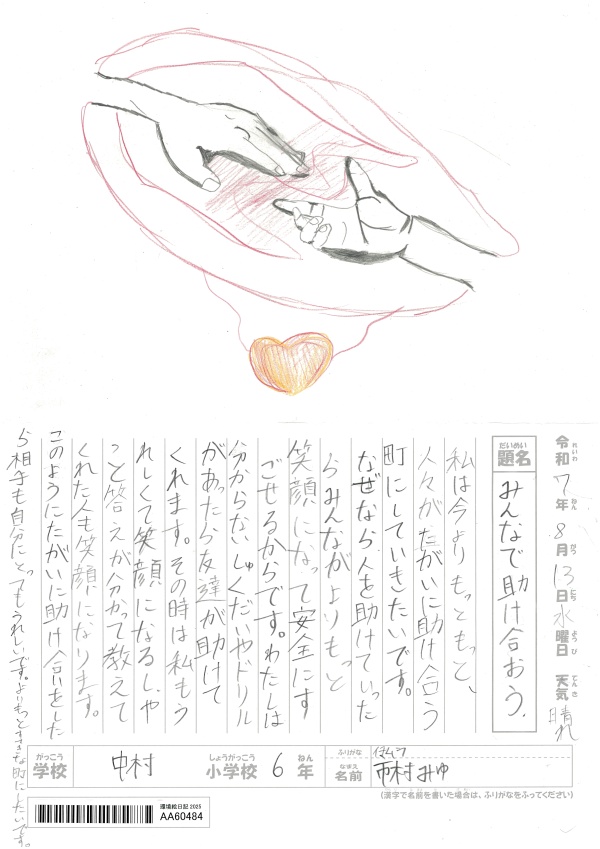 令和7年8月13日水曜日 天気 晴れ
れいわ ねん がつ にち ようび てんき
だいめい
題名 みんなで助け合おう。
私は今よりもっともっと、
人々がたがいに助け合う
町にしていきたいです。
なぜなら人を助けていった
らみんながよりもっと
笑顔になって安全にす
ごせるからです。わたしは
分からないしゅくだいやドリル
があったら友達が助けて
くれます。その時は私もう
れしくて笑顔になるし、や
こと答えが分かって教えて
くれた人も笑顔になります。
このようにたがいに助け合いをした
ら相手も自分にとってもうれしいです。よりもっとすてきな町にしたいです。
がっこう
学校 中村 小学校 6年
しょうがっこう ねん
ふりがな
なまえ
名前 市村みゆ
(漢字で名前を書いた場合は、ふりがなをふってください)
環境絵日記 2025
AA60484